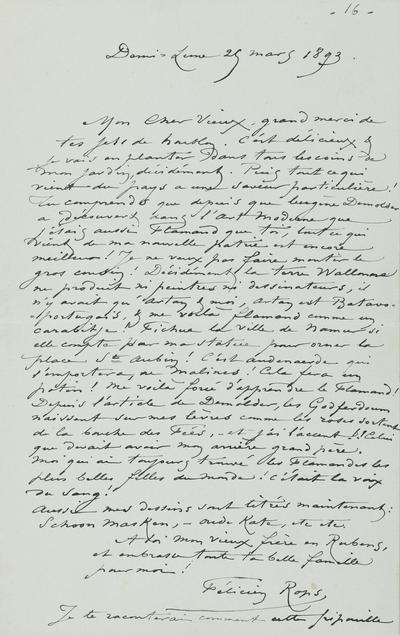 - 16 -
Demi-Lune 25 mars 1893.
Mon Cher Vieux, grand merci de
tes jets de houblon. C'est délicieux &
je vais en planter dans tous les coins de
mon jardin, décidément. Puis tout ce qui
vient du pays a une saveur particulière!
Tu comprends que depuis que Eugène Demolder
a découvert dans l'Art Moderne que
j'étais aussi Flamand que toi, tout ce qui
vient de ma nouvelle patrie est encore
meilleur! Je ne veux pas faire monter le
gros cou! Décidément la terre Wallonne
ne produit ni peintres ni dessinateurs, il
n'y avait qu'Artan & moi, Artan est Batavo-
Portugais, & me voilà Flamand comme un
! Fichue la ville de Namur si
elle compte sur ma statue pour orner la
place St Aubin! C'est Audenaerde qui
l'emportera, ou Malines! Cela fera un
! Me voilà forcé d'apprendre le Flamand!
Depuis l'article de Demolder, les Godferdoum
naissent sur mes lèvres comme les roses sortent
de la bouche des Fées, - et j'ai l'accent
que devait avoir mon arrière grand père.
Moi qui ai toujours trouvé les Flamandes les
plus belles filles du monde! C'était la voix
du sang!
Aussi mes dessins sont titrés maintenant:
Schoon Masken, - oude Kate, etc etc.
A toi mon vieux frère en Rubens,
et embrasse toute ta belle famille
pour moi!
Félicien Rops,
Je te raconterai comment cette fripouille